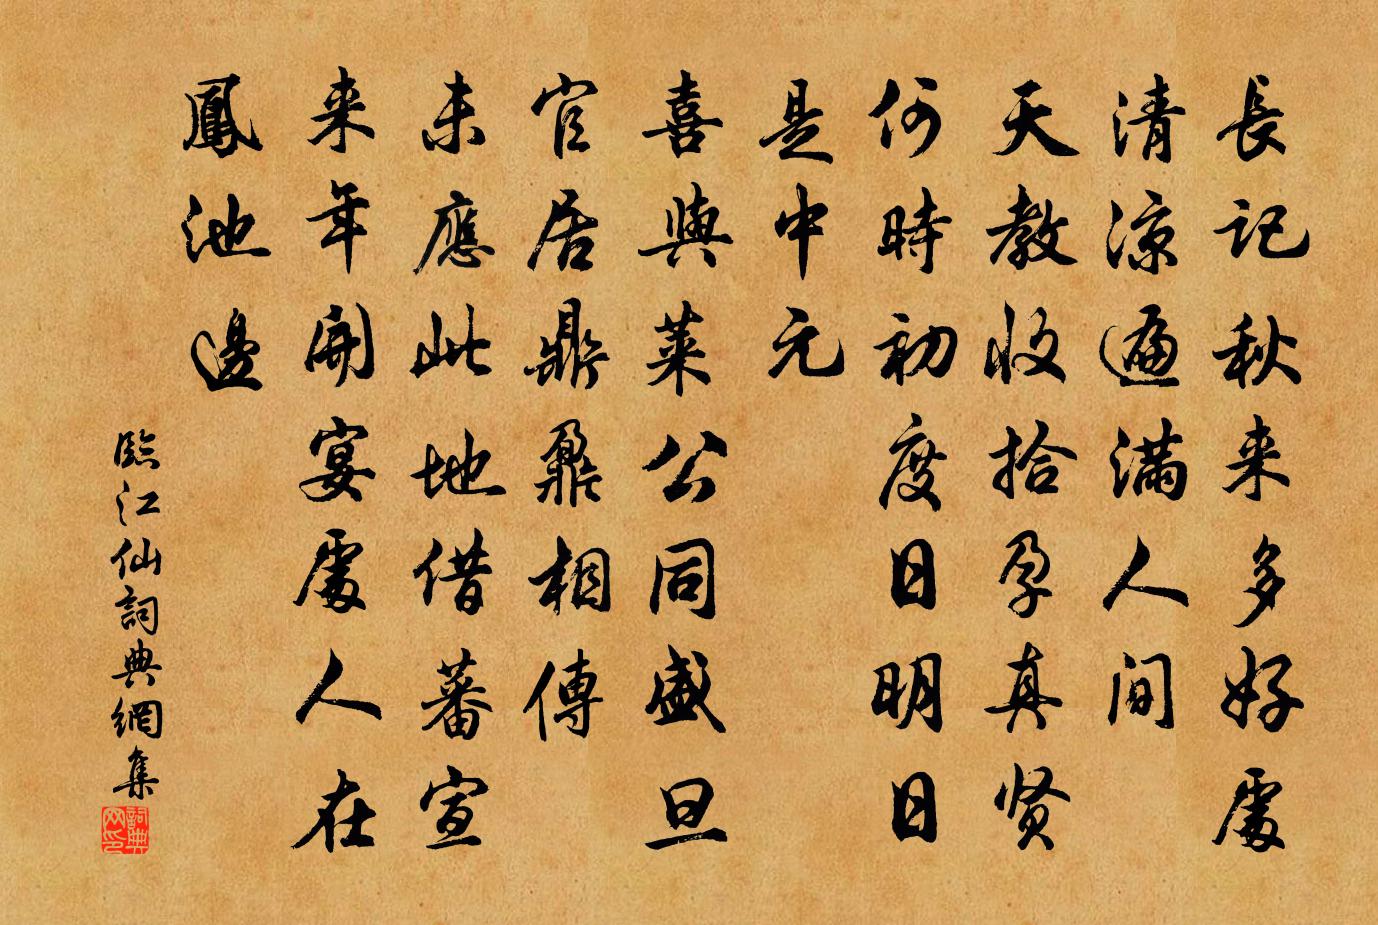 長记秋来多好處
清涼遍满人间
天教收拾孕真贤
何時初度日明日
是中元
喜與萊公同盛旦
官居鼎鼐相傳
未應此地借蕃宣
来年開宴處人在
鳳池邊
臨江仙詞典網集
詞典
网印